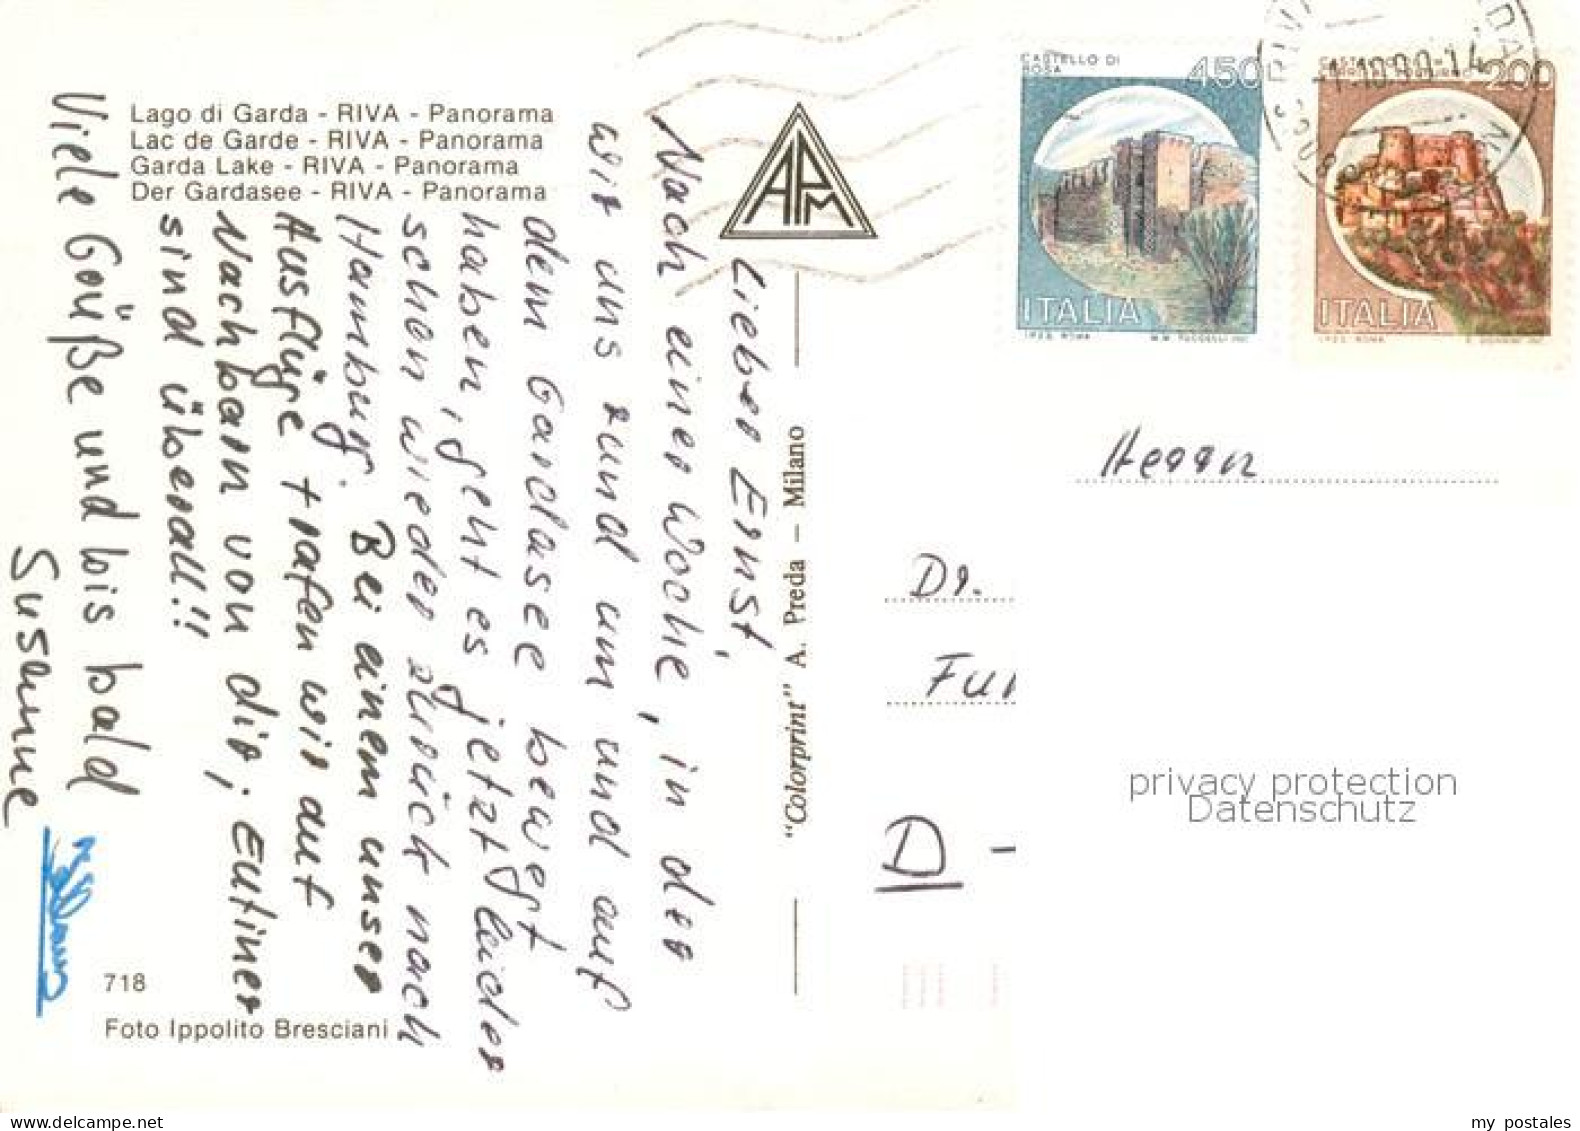 Lago di Garda - RIVA - Panorama
Lac de Garde - RIVA - Panorama
Garda Lake - RIVA - Panorama
Der Gardasee - RIVA - Panorama
Lieber Ernst,
Nach einer Woche, in der
wir uns rund um und auf
dem Gardasee bewegt
haben, geht es jetzt leider
schon wieder zurück nach
Hamburg. Bei einem unser
Ausflüge trafen wir auf
Nachbarn von dir; Eutiner
sind überall!!
Viele Grüße und bis bald
Susanne
718
Foto Ippolito Bresciani
"Colorprint" A. Preda - Milano
APM
CASTELLO DI
ROSA
450
ITALIA
I.P.Z.S. ROMA
200
ITALIA
I.P.Z.S. ROMA
RIVA
Herrn
Dr.
D -
privacy protection
Datenschutz
my postales